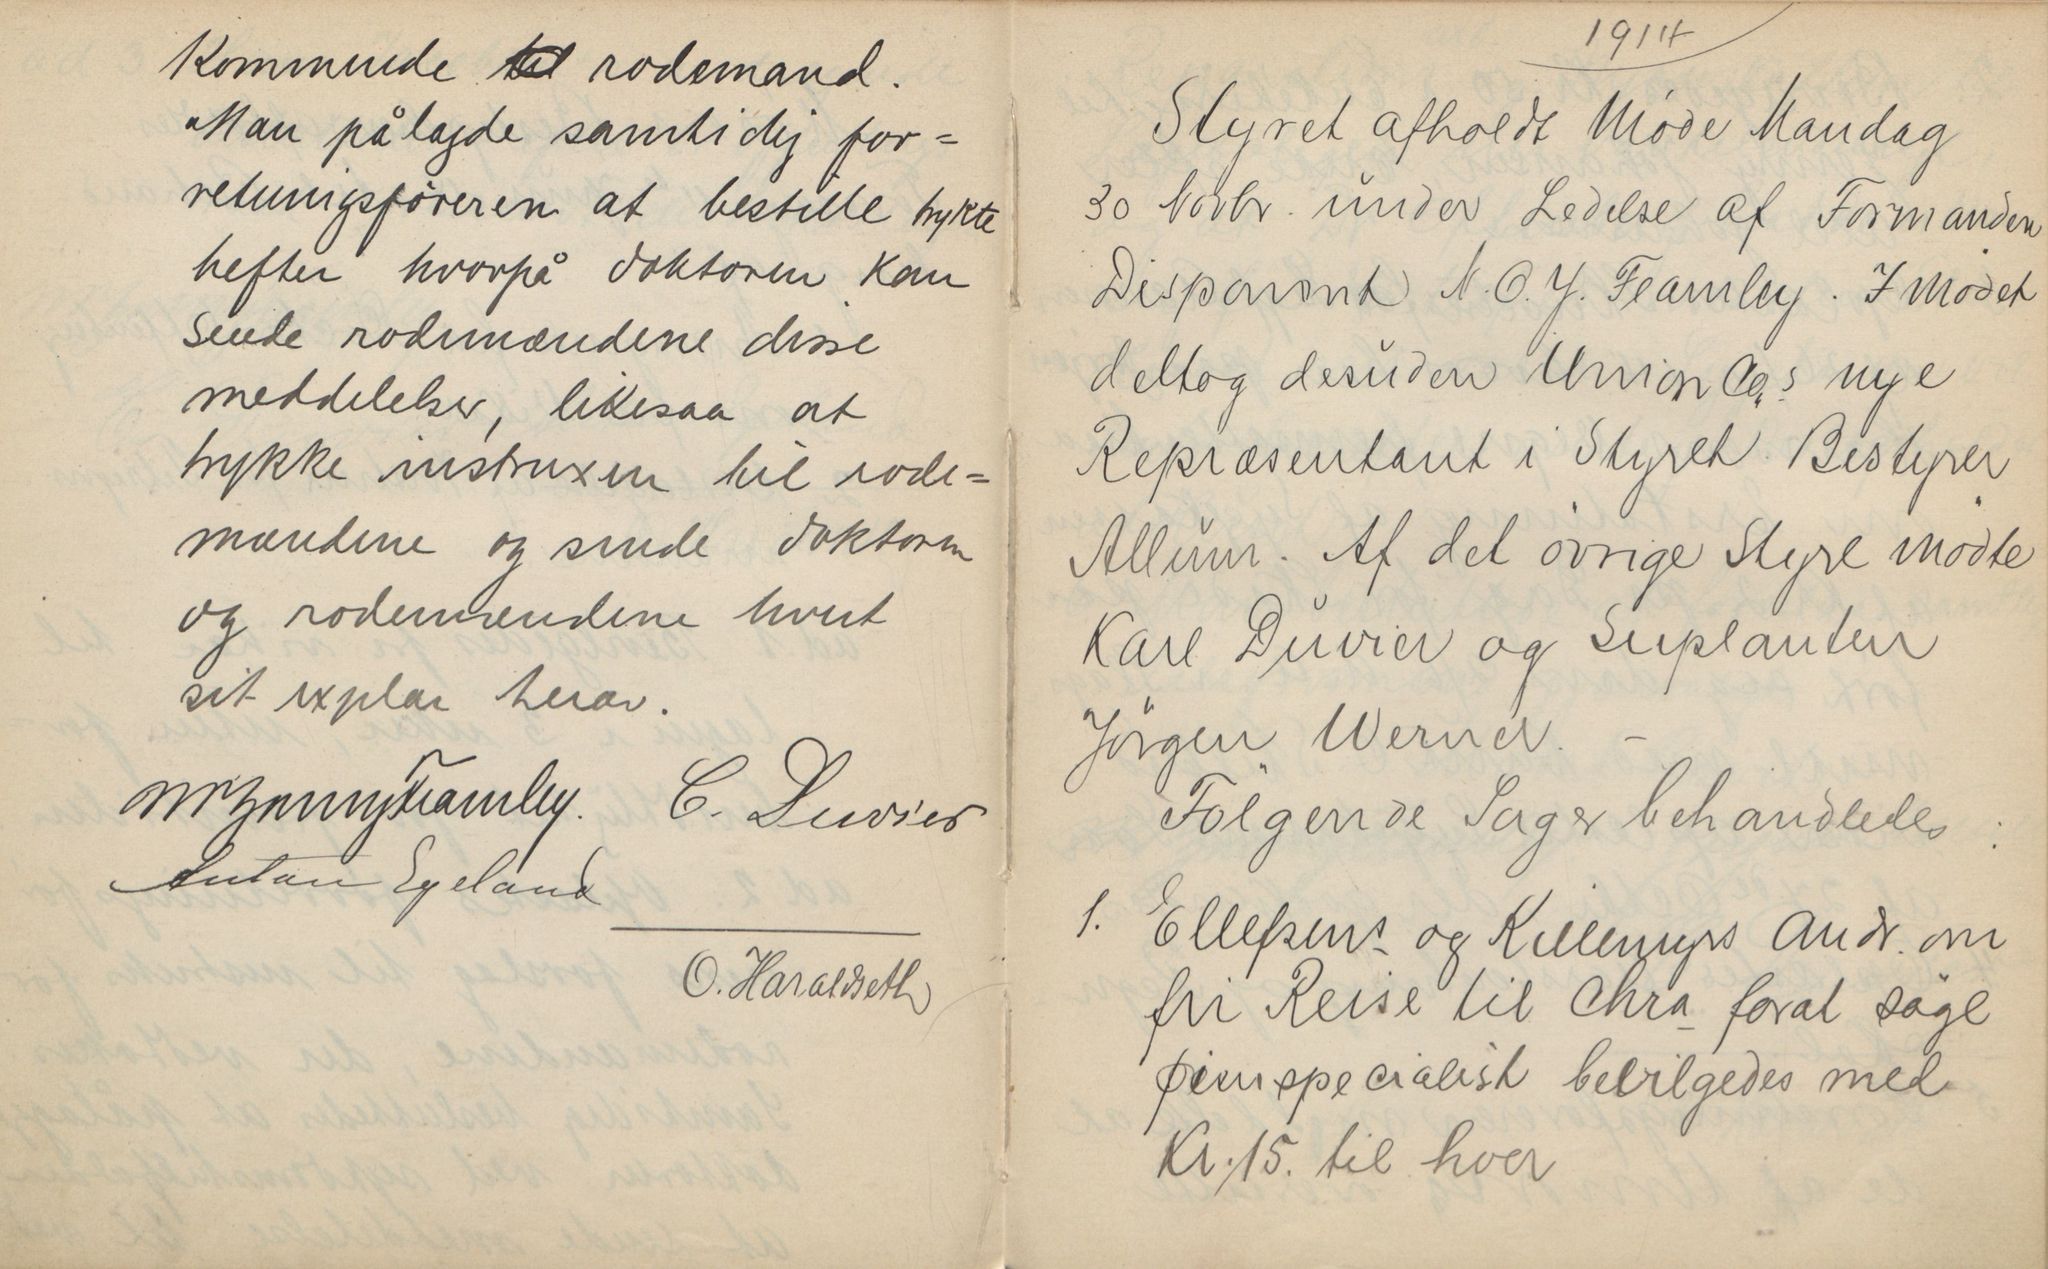 kommende rodemand.
Man pålagde samtidig for=
retningsföreren at bestille trykte
hefter hvorpå doktoren kan
sende rodemændene disse
meddelelser, likesaa at
trykke instruxen til rode=
mændene og sende doktoren
og rodemændene hvert
sit explar herav.
Framley. C. Duvier
Anton Egeland
O. Haraldseth
1914
Styret afholdt Möde Mandag
30 Novbr. under Ledelse af Formanden
Disponent N. O. Y. Framley. I Mödet
deltog desuden Union Co,s nye
Repræsentant i Styret Bestyrer
Allum. Af det övrige Styre mödte
Karl Duvier og Suplanten
Jörgen Werner. –
Fölgende Sager behandledes :
1. Ellefsens og Killemyrs Andr. om
fri Reise til Chra forat söge
specialist bevilgedes med
Kr. 15. til hver